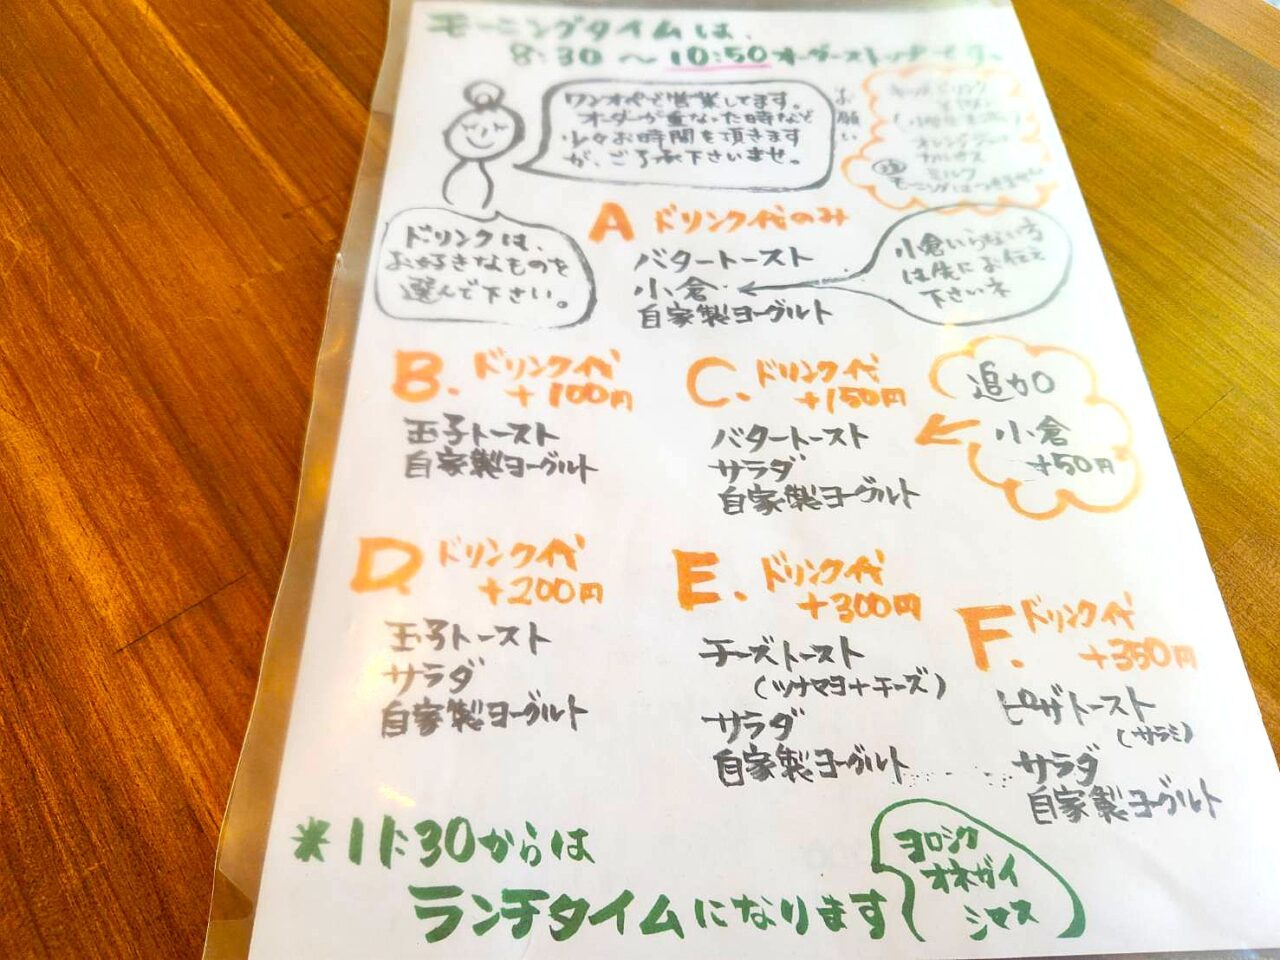 モーニングタイムは、
8:30 〜 10:50 オーダーストップ
ワンオペで営業してます。
オーダーが重なった時など
少々お時間を頂きます
が、ご了承下さいませ。
お願い
キッズドリンク
オレンジジュース
カルピス
ミルク
モーニングはつきません
ドリンクは、
お好きなものを
選んで下さい。
A ドリンク代のみ
バタートースト
小倉
自家製ヨーグルト
小倉いらない方
は先にお伝え
下さいネ
B. ドリンク代
+100円
玉子トースト
自家製ヨーグルト
C. ドリンク代
+150円
バタートースト
サラダ
自家製ヨーグルト
追加
小倉
+50円
D. ドリンク代
+200円
玉子トースト
サラダ
自家製ヨーグルト
E. ドリンク代
+300円
チーズトースト
(ツナマヨ+チーズ)
サラダ
自家製ヨーグルト
F. ドリンク代
+350円
ピザトースト
(サラミ)
サラダ
自家製ヨーグルト
※11:30からは
ランチタイムになります
ヨロシク
オネガイ
シマス